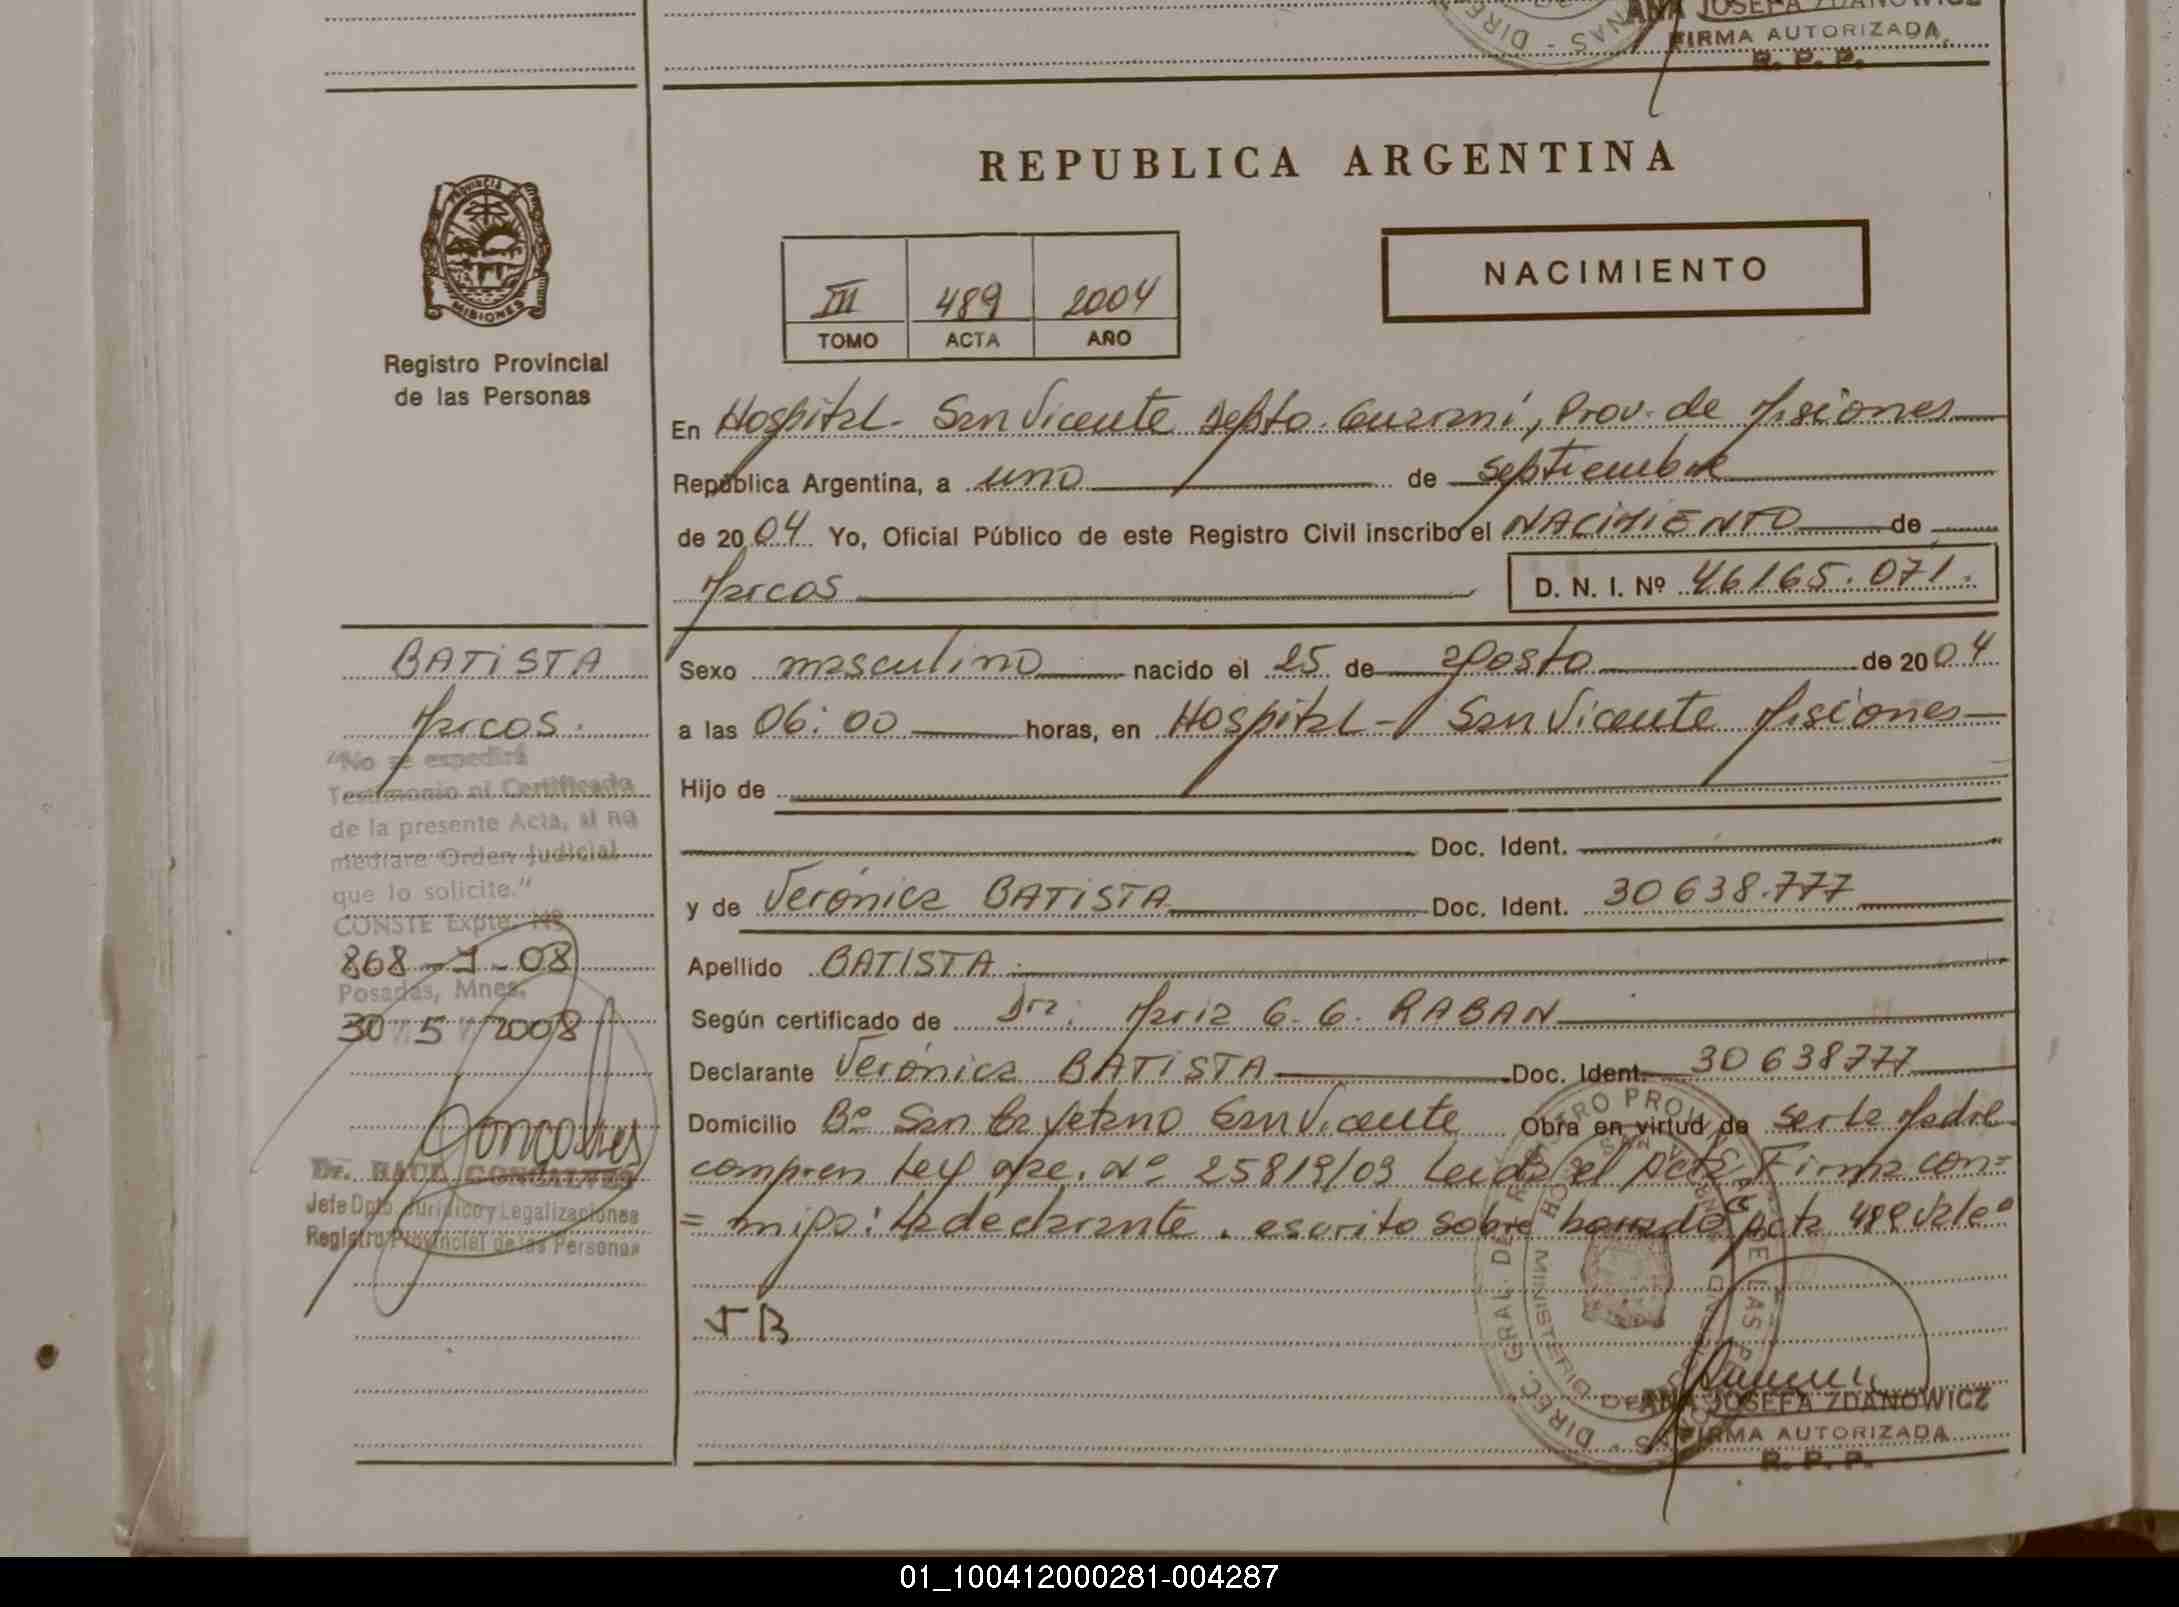 ANA JOSEFA ZDANOWICZ
FIRMA AUTORIZADA
R. P. P.
REPUBLICA ARGENTINA
PROVINCIA DE
MISIONES
Registro Provincial
de las Personas
III 489 2004
TOMO ACTA AÑO
NACIMIENTO
En Hospital - San Vicente Depto. Guaraní, Prov. de Misiones
República Argentina, a uno de septiembre
de 2004 Yo, Oficial Público de este Registro Civil inscribo el NACIMIENTO de
Marcos D. N. I. Nº 46165.071.
BATISTA
Marcos.
Sexo masculino nacido el 25 de agosto de 2004
a las 06:00 horas, en Hospital - San Vicente Misiones
"No se expedirá
Testimonio ni Certificado
de la presente Acta, si no
mediare Orden Judicial
que lo solicite."
CONSTE Expte. Nº
868-1-08
Posadas, Mnes.
30 / 5 / 2008
Goncalves
Dr. RAUL GONCALVES
Jefe Dpto. Jurídico y Legalizaciones
Registro Provincial de las Personas
Hijo de
Doc. Ident.
y de Verónica BATISTA Doc. Ident. 30638.777
Apellido BATISTA
Según certificado de Dra: María G. G. RABAN
Declarante Verónica BATISTA Doc. Ident. 30638777
Domicilio Bº San Cayetano San Vicente Obra en virtud de ser la Madre
compren Ley nac. Nº 25819/03 Leída el Acta, Firma con=
=migo: la declarante. escrito sobre borrado Acta 489 Vale
VB
ANA JOSEFA ZDANOWICZ
FIRMA AUTORIZADA
R. P. P.
01_100412000281-004287